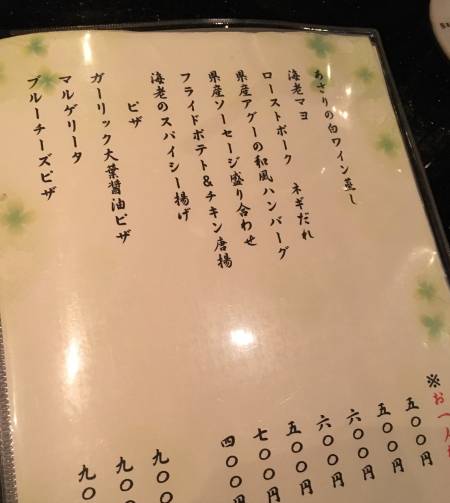 ※お
あさりの白ワイン蒸し 五〇〇円
海老マヨ 五〇〇円
ローストポーク ネギだれ 六〇〇円
県産アグーの和風ハンバーグ 六〇〇円
県産ソーセージ盛り合わせ 五〇〇円
フライドポテト&チキン唐揚 七〇〇円
海老のスパイシー揚げ 四〇〇円
ピザ
ガーリック大葉醤油ピザ 九〇〇
マルゲリータ 九〇〇
ブルーチーズピザ 九〇